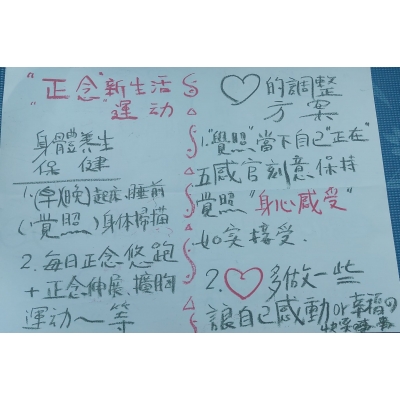 "正念"新生活
"運动"
身體養生
保健
1.(早)(晚)起床、睡前
(覺照)身体掃描
2.每日正念悠跑
+正念伸展、擴胸
運动~等
♡的調整
方案
1."覺照"當下自己"正在"
五感官刻意保持
覺照"身心感受"
如实接受.
2.♡多做一些
讓自己感動or幸福の
快樂